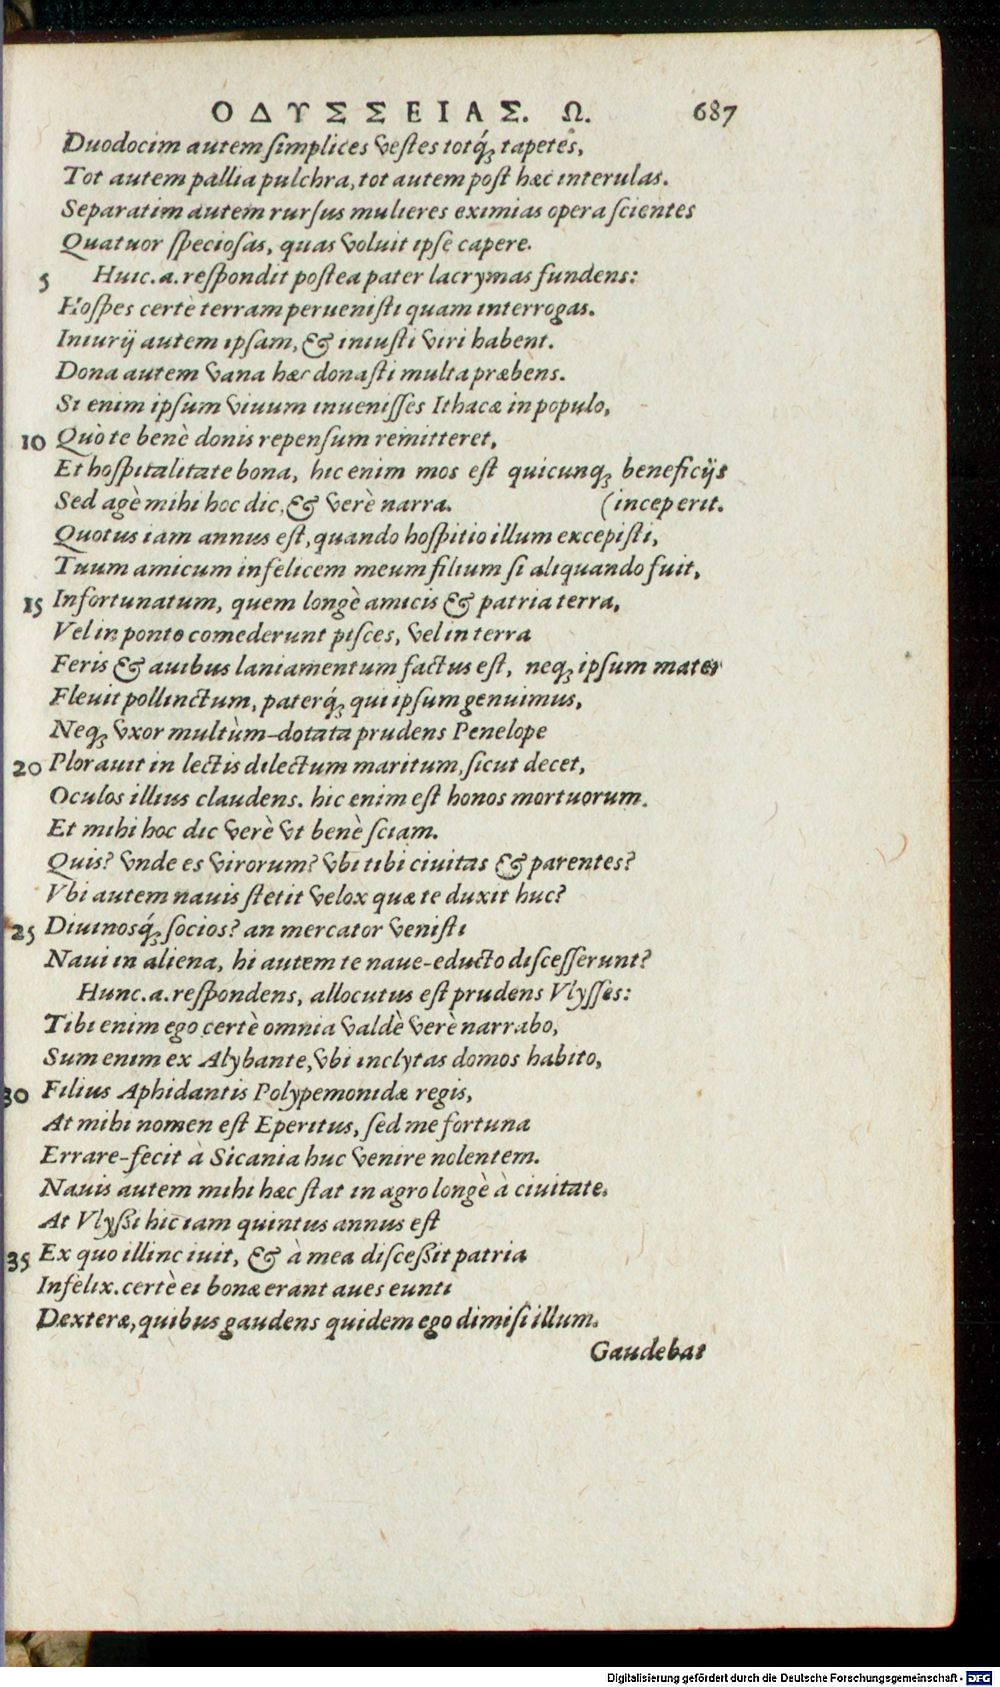 ΟΔΥΣΣΕΙΑΣ. Ω. 687
Duodocim autem ſimplices veſtes totq́; tapetes,
Tot autem pallia pulchra, tot autem poſt hæc interulas.
Separatim autem rurſus mulieres eximias opera ſcientes
Quatuor ſpecioſas, quas voluit ipſe capere.
5 Huic.a.reſpondit poſtea pater lacrymas fundens:
Hoſpes certè terram perueniſti quam interrogas.
Iniurij autem ipſam, & iniuſti viri habent.
Dona autem vana hæc donaſti multa præbens.
Si enim ipſum viuum inueniſſes Ithacæ in populo,
10 Quò te benè donis repenſum remitteret,
Et hoſpitalitate bona, hic enim mos eſt quicunq; beneficijs
Sed agè mihi hoc dic, & verè narra. (inceperit.
Quotus iam annus eſt, quando hoſpitio illum excepiſti,
Tuum amicum infelicem meum filium ſi aliquando fuit,
15 Infortunatum, quem longè amicis & patria terra,
Vel in ponto comederunt piſces, vel in terra
Feris & auibus laniamentum factus eſt, neq; ipſum mater
Fleuit pollinctum, paterq́; qui ipſum genuimus,
Neq; vxor multùm-dotata prudens Penelope
20 Plorauit in lectis dilectum maritum, ſicut decet,
Oculos illius claudens. hic enim eſt honos mortuorum.
Et mihi hoc dic verè vt benè ſciam.
Quis? vnde es virorum? vbi tibi ciuitas & parentes?
Vbi autem nauis ſtetit velox quæ te duxit huc?
25 Diuinosq́; ſocios? an mercator veniſti
Naui in aliena, hi autem te naue-educto diſceſſerunt?
Hunc.a.reſpondens, allocutus eſt prudens Vlyſſes:
Tibi enim ego certè omnia valdè verè narrabo,
Sum enim ex Alybante, vbi inclytas domos habito,
30 Filius Aphidantis Polypemonidæ regis,
At mihi nomen eſt Eperitus, ſed me fortuna
Errare-fecit à Sicania huc venire nolentem.
Nauis autem mihi hæc ſtat in agro longè à ciuitate.
At Vlyßi hic iam quintus annus eſt
35 Ex quo illinc iuit, & à mea diſceßit patria
Infelix. certè ei bonæ erant aues eunti
Dexteræ, quibus gaudens quidem ego dimiſi illum.
Gaudebat
Digitalisierung gefördert durch die Deutsche Forschungsgemeinschaft - DFG